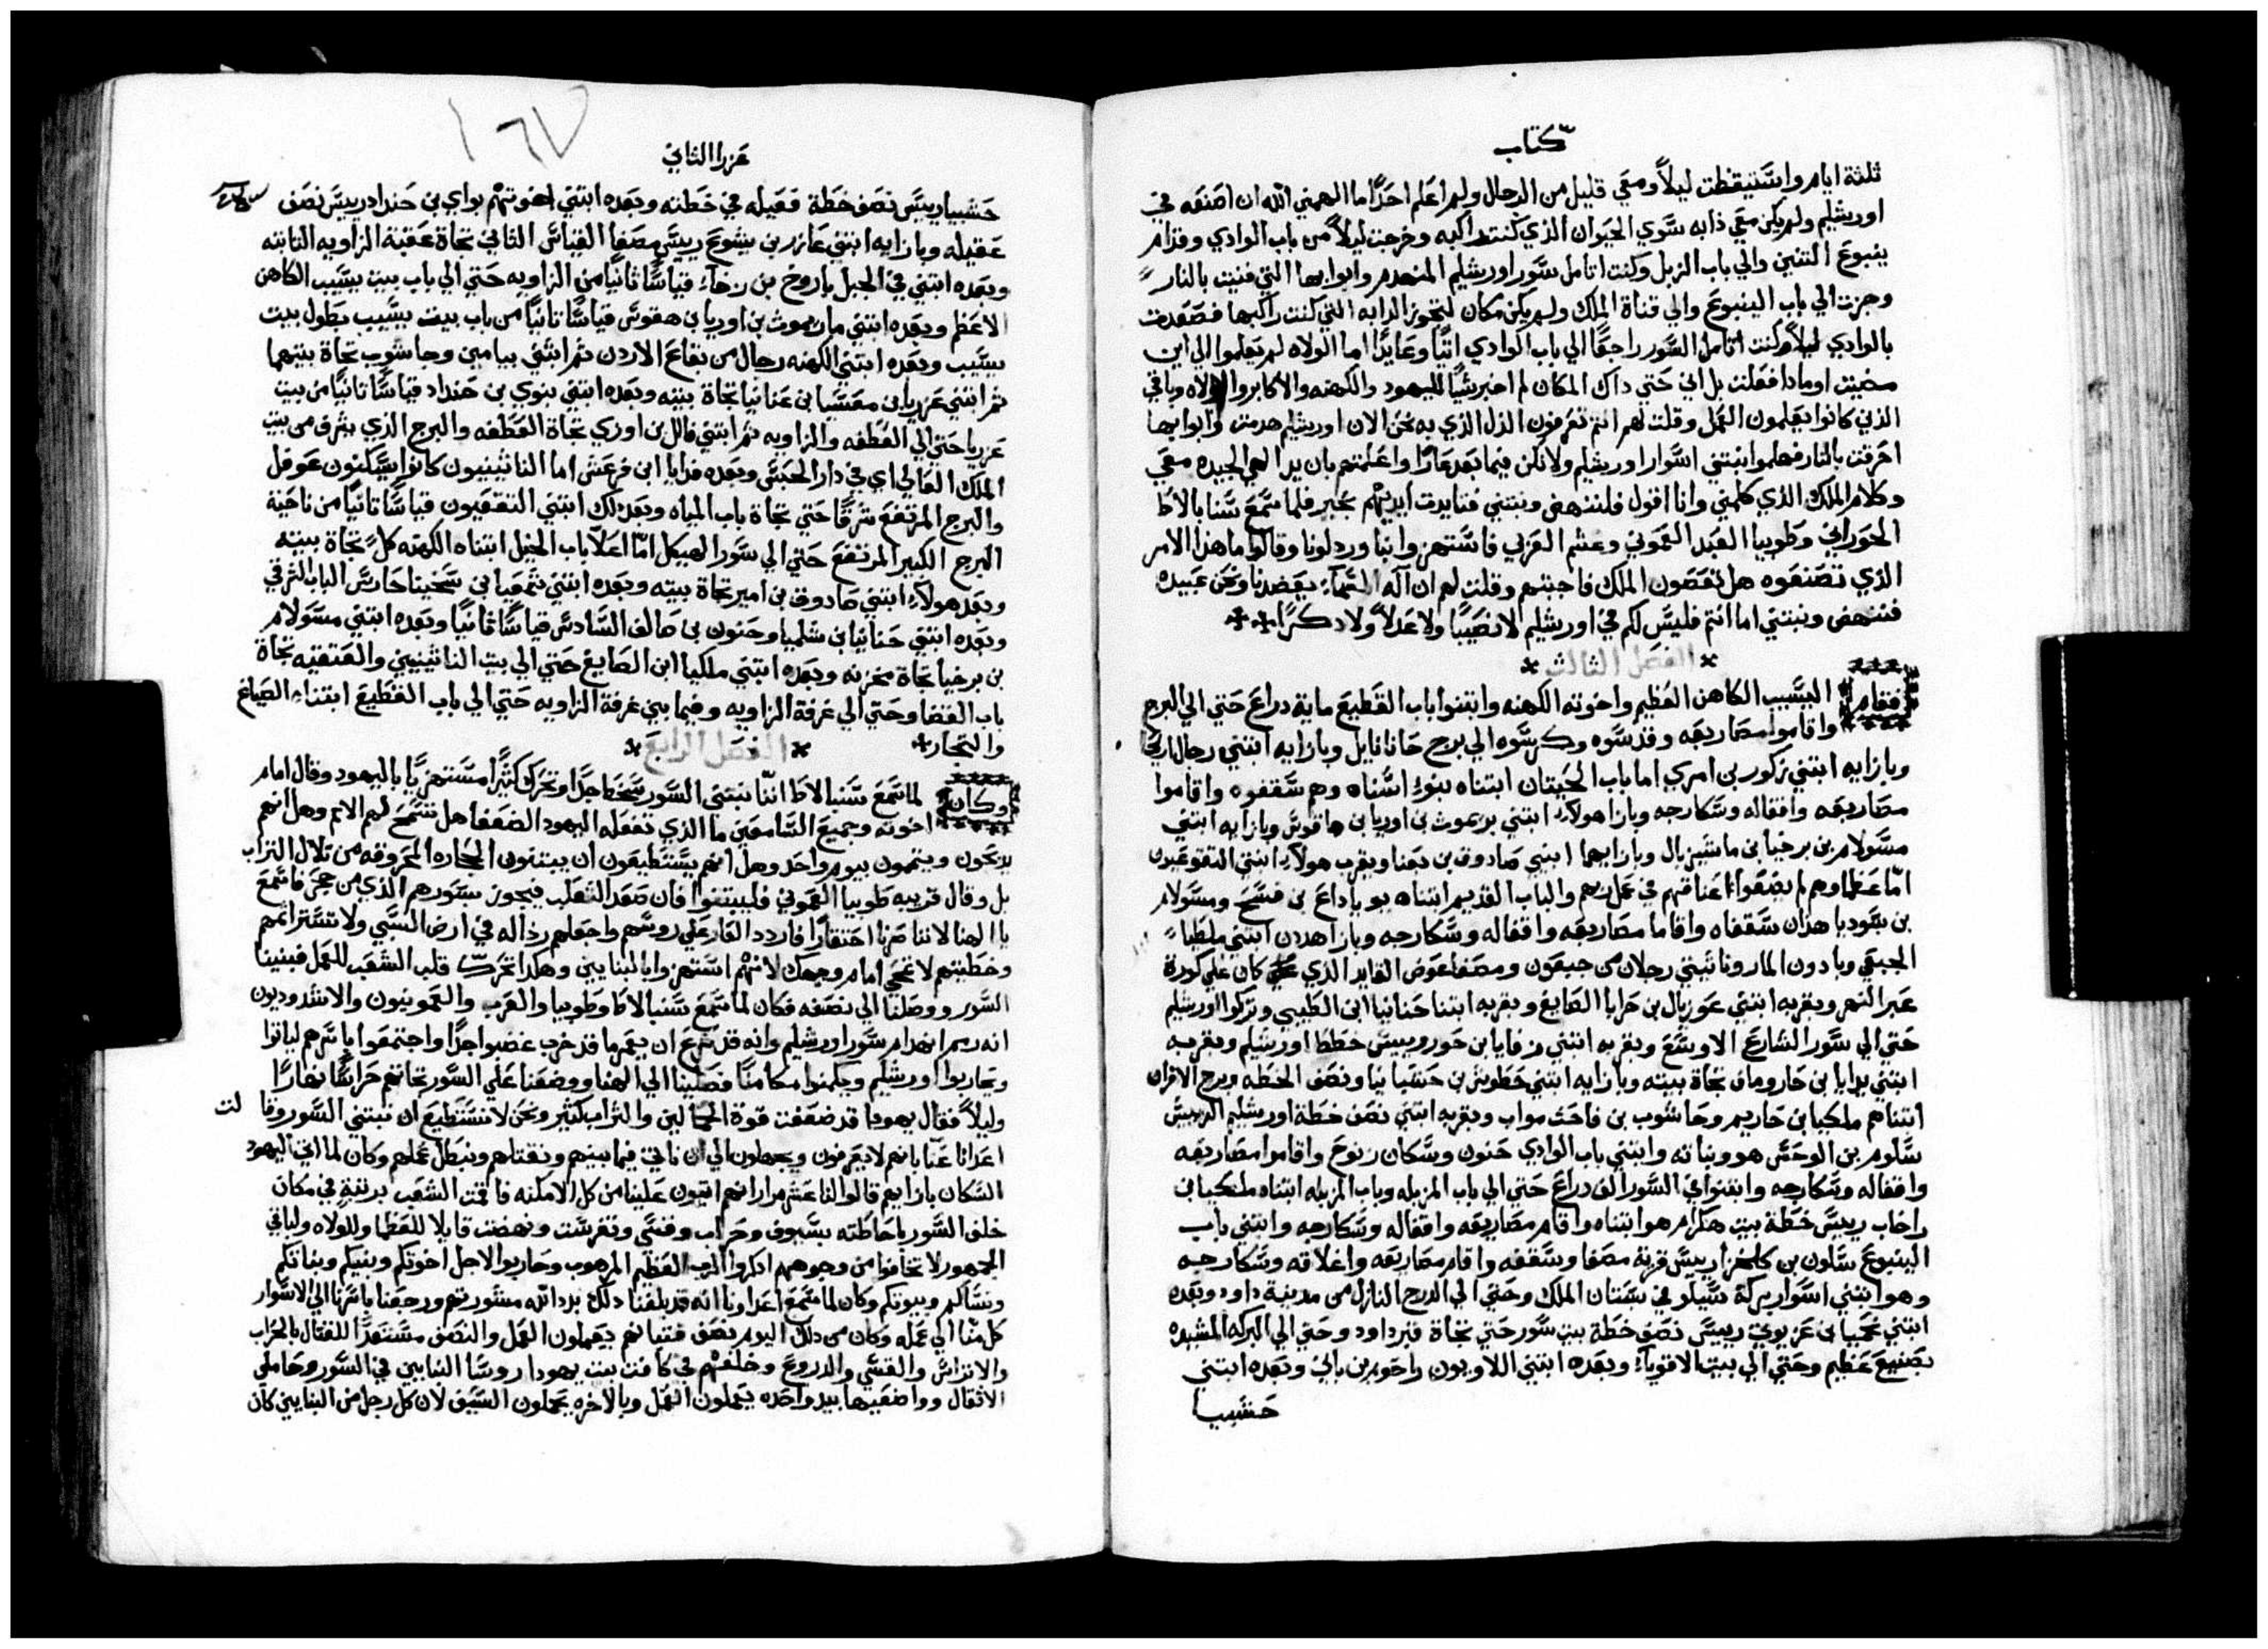 كتاب
ثلثة ايام واستيقظت ليلاً ومعي قليل من الرجال ولم اعلم احدًا اما الهمني الله ان اصنعه في
اورشليم ولم يكن معي دابه سوي الحيوان الذي كنت راكبه وخرجت ليلاً من باب الوادي وقدام
ينبوع التنين والي باب الزبل وكنت اتامل سور اورشليم المنهدم وابوابها التي فنيت بالنار
وجزت الي باب الينبوع والي قناة الملك ولم يكن مكان لتجوز الدابه التي كنت راكبها فصعدت
بالوادي ليلاً وكنت اتامل السور راجعًا الي باب الوادي اتيًا وعايدًا اما الولاه لم يعلموا الي اين
مضيت او ماذا فعلت بل اني حتي داك المكان لم اخبر شيًا لليهود والكهنه والاكابر والولاه وباقي
الذين كانوا يعلمون العمل وقلت لهم انتم تعرفون الذل الذي به نحن الان اورشليم هدمت وابوابها
احرقت بالنار فهلموا نبتني اسوار اورشليم ولا نكن فيما بعد عارًا واعلمتهم بان يد الهي الجيده معي
وكلام الملك الذي كلمني وانا اقول فلننهض ونبتني فتايدت ايديهم بخير فلما سمع سنبالاط
الحوراني وطوبيا العبد العموني وغشم العربي فاستهزوا بنا وردلونا وقالوا ما هذا الامر
الذي تصنعوه هل تعصون الملك فاجبتهم وقلت لهم ان اله السماء يعضدنا ونحن عبيده
فننهض ونبتني اما انتم فليس لكم في اورشليم لا نصيبًا ولا عدلاً ولا دكرًا
الفصل الثالث
فقام اليسيب الكاهن العظيم واخوته الكهنه وابتنوا باب القطيع ماية دراع حتي الي البرج
واقاموا مصاريعه وقدسوه وكرسوه الي برج حانانايل وبازايه ابتني رجال اريحا
وبازايه ابتني زكور بن امري اما باب الحيتان ابتناه بنوا اسناه وهم سقفوه واقاموا
مصاريعه واقفاله وسكارجه وبازا هولاء ابتني بريموث بن اوريا بن هاقوس وبازايه ابتني
مسولام بن برخيا بن ماشيزبال وبازايهما ابتني صادوق بن بعنا وبقرب هولاء ابتني التقوعيون
اما عظماوهم لم يضعوا اعناقهم في عمل ربهم والباب القديم ابتناه يوياداع بن فسح ومسولام
بن بسوديا هذان سقفاه واقاما مصاريعه واقفاله وسكارجه وبازا هدين ابتني ملطيا
الجبعي ويادون الماروناثيني رجلان من جبعون ومصفا عوض القايد الذي كان علي كورة
عبر النهر وبقربه ابتني عوزيال بن حرايا الصايغ وبقربه ابتنا حنانيا ابن الطيبي وتركوا اورشليم
حتي الي سور الشارع الاوسع وبقربه ابتني رفايا بن حور وريس خطط اورشليم وبقربه
ابتني يدايا بن حاروماف تجاة بيته وبازايه ابتني حطوش بن حشبانيا ونصف الخطه وبرج الافران
ابتناهم ملكيا بن حاريم وحاشوب بن فاحث مواب وبقربه ابتني نصف خطة اورشليم الرييس
سلوم بن الوحش هو وبناته وابتني باب الوادي حنون وسكان زنوح واقاموا مصاريعه
واقفاله وسكارجه وابتنوا في السور الف دراع حتي الي باب المزبله وباب المزبله ابتناه ملكيا بن
راخاب رييس خطة بيت هكرام هو ابتناه واقام مصاريعه واقفاله وسكارجه وابتني باب
الينبوع سلون بن كلحزا رييس قرية مصفا وسقفه واقام مصاريعه واغلاقه وسكارجه
وهو ابتني اسوار بركة سيلو في بستان الملك وحتي الي الدرج النازل من مدينة داود وبعده
ابتني نحميا بن عزبوق رييس نصف خطة بيت سور حتي تجاة قبر داود وحتي الي البركه المشيده
بصنيع عظيم وحتي الي بيت الاقوياء وبعده ابتني اللاويون راحوم بن باني وبعده ابتني
حشبيا
١٦٧
عزرا الثاني
حشبيا رييس نصف خطة قعيله في خطته وبعده ابتني اخوتهم بواي بن حنداد رييس نصف
عقيله وبازايه ابتني عازر بن يشوع رييس مصفا القياس الثاني تجاة عقبة الزاويه الثابته
وبعده ابتني في الجبل باروخ بن زخاء قياسًا ثانيًا من الزاويه حتي الي باب بيت يسيب الكاهن
الاعظم وبعده ابتني ماريموث بن اوريا بن هقوس قياسًا ثانيًا من باب بيت يسيب بطول بيت
يسيب وبعده ابتني الكهنه رجال من بقاع الاردن ثم ابتني بيامين وحاشوب تجاة بيتهما
ثم ابتني عزريا بن معسيا بن عنانيا تجاة بيته وبعده ابتني بنوي بن حنداد قياسًا ثانيًا من بيت
عزريا حتي الي العطفه والزاويه ثم ابتني فالل بن اوزي تجاة العطفه والبرج الذي يشرق من بيت
الملك العالي اي في دار الحبس وبعده فدايا ابن فرعش اما الناثينيون كانوا يسكنون عوفل
والبرج المرتفع شرقًا حتي تجاة باب المياه وبعد ذلك ابتني التقعيون قياسًا ثانيًا من ناحية
البرج الكبير المرتفع حتي الي سور الهيكل اما اعلا باب الخيل ابتناه الكهنه كل تجاة بيته
وبعد هولاء ابتني صادوق بن امير تجاة بيته وبعده ابتني شمعيا بن سخنيا حارس الباب الشرقي
وبعده ابتني حنانيا بن شلميا وحنون بن صالف السادس قياسًا ثانيًا وبعده ابتني مسولام
بن برخيا تجاة مخزنه وبعده ابتني ملكيا ابن الصايغ حتي الي بيت الناثينيين والعتقيه تجاة
باب القضا وحتي الي غرفة الزاويه وفيما بين غرفة الزاويه حتي الي باب القطيع ابتناه الصياغ
والتجار
الفصل الرابع
وكان لما سمع سنبالاط اننا نبتني السور سخط جدًا وتحرك كثيرًا مستهزيًا باليهود وقال امام
اخوته وجميع السامعين ما الذي تفعله اليهود الضعفا هل تسمح لهم الامم وهل انهم
يدبحون ويتمون بيوم واحد وهل انهم يستطيعون ان يبتنون الحجاره المحروقه من تلال التراب
بل وقال قريبه طوبيا العموني فليبتنوا فان صعد الثعلب فيجوز سورهم الذي من حجر فاسمع
يا الهنا لاننا صرنا احتقارًا فاردد العار علي روسهم واجعلهم رذاله في ارض السبي ولا تستر اثمهم
وخطيتهم لا تمحي امام وجهك لانهم استهزوا بالبنايين وهكذا تحرك قلب الشعب للعمل فبنينا
السور ووصلنا الي نصفه فكان لما سمع سنبالاط وطوبيا والعرب والعمونيون والاشدوديون
انه انهدام سور اورشليم وانه قد شرع ان يعمر ما قد خرب غضبوا جدًا واجتمعوا باسرهم لياتوا
ويحاربوا اورشليم ويكمنوا مكامنًا فصلينا الي الهنا ووضعنا علي السور تجاهم حراسًا نهارًا
وليلاً فقال يهودا قد ضعفت قوة الحمالين والتراب كثير ونحن لا نستطيع ان نبتني السور وقالت
اعدانا عنا بانهم لا يعرفون ويجهلون الي ان ناتي فيما بينهم ونقتلهم ونبطل عملهم وكان لما اتي اليهود
السكان بازايهم قالوا لنا عشر مرار انهم اتيون علينا من كل الامكنه فاقمت الشعب برتبة في مكان
خلف السور باحاطته بسيوف وحراب وقسي وتفرست ونهضت قايلا للعظما وللولاه ولباقي
الجمهور لا تخافوا من وجوههم ادكروا الرب العظيم المرهوب وحاربوا لاجل اخوتكم وبنيكم وبناتكم
ونساكم وبيوتكم وكان لما سمع اعداونا انه قد بلغنا ذلك بدد الله مشورتهم ورجعنا باسرنا الي الاسوار
كل منا الي عمله وكان من ذلك اليوم نصف فتيانهم يعملون العمل والنصف مستعدًا للقتال بالحراب
والاتراس والقسي والدروع وخلفهم في كافت بيت يهودا روسا البنايين في السور وحاملي
الاثقال وواضعيها بيد واحده يعملون العمل وبالاخره يحملون السيف لان كل رجل من البنايين كان